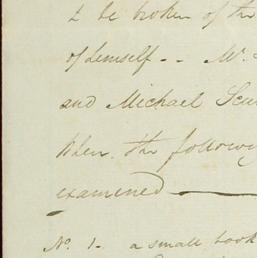 to be broken of the
of himself - - Mr.
and Michael
When the following
examined
No. 1 - a small book